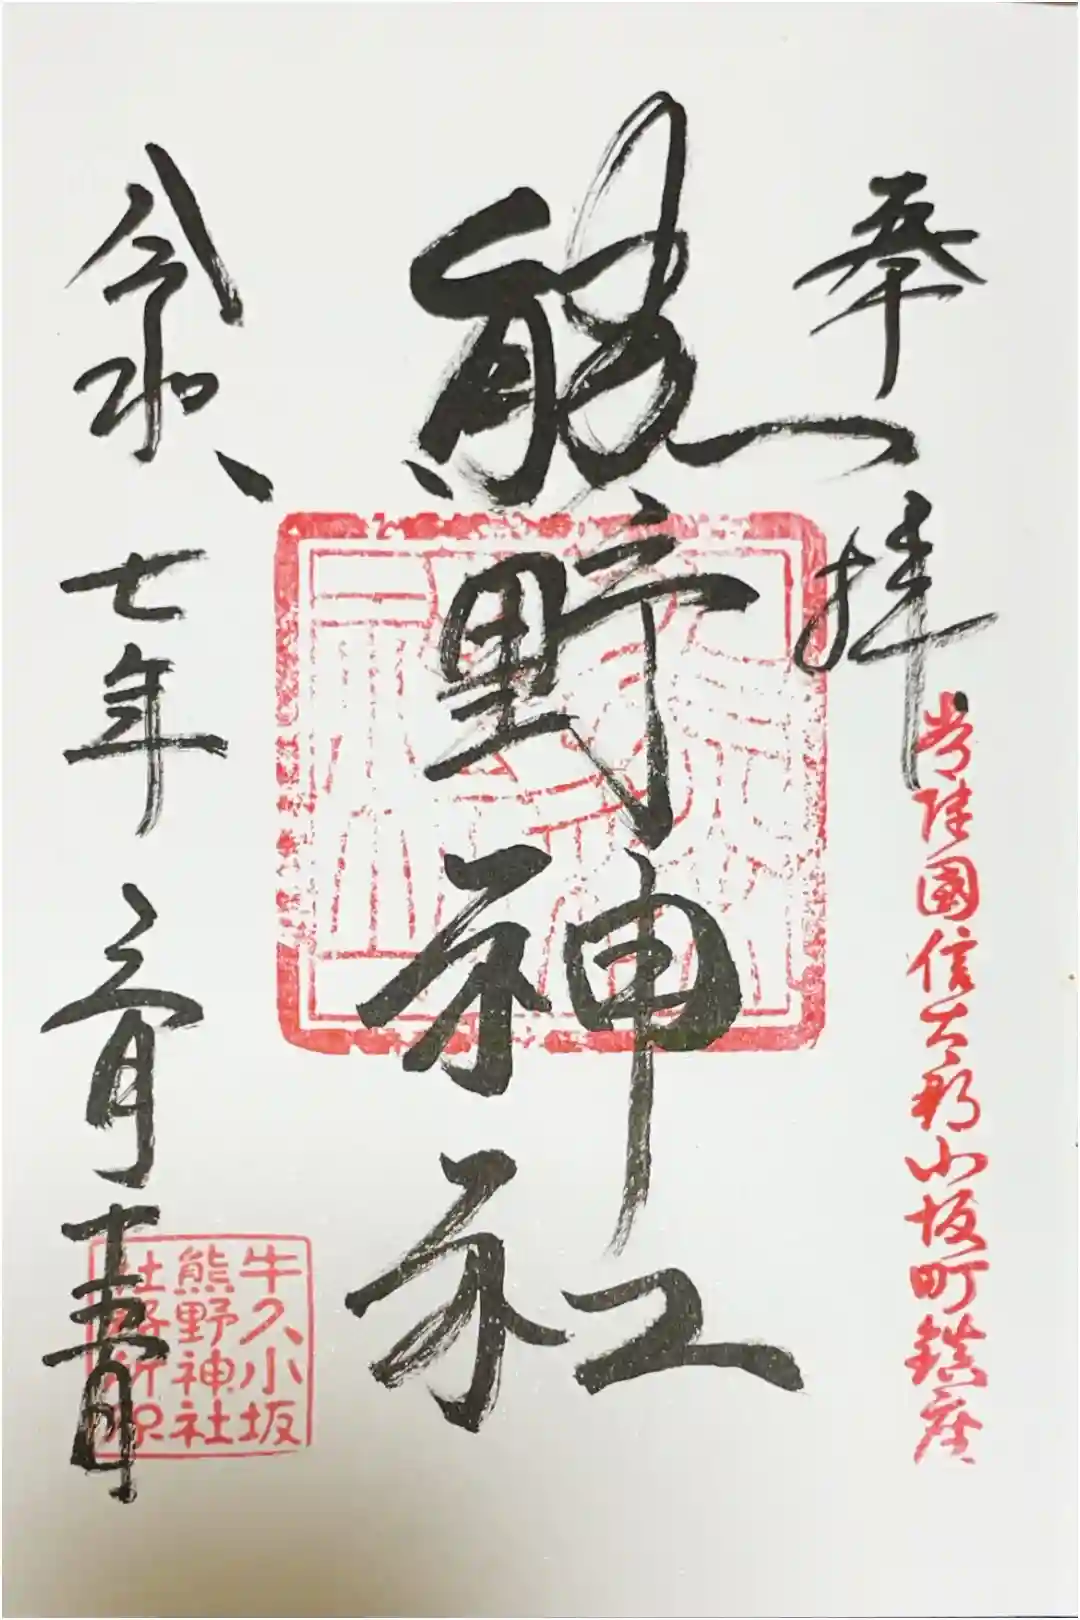 奉拝
常陸國信太郡小坂町鎮座
熊野神社
令和七年三月十五日
牛久小坂
熊野神社
社務所印